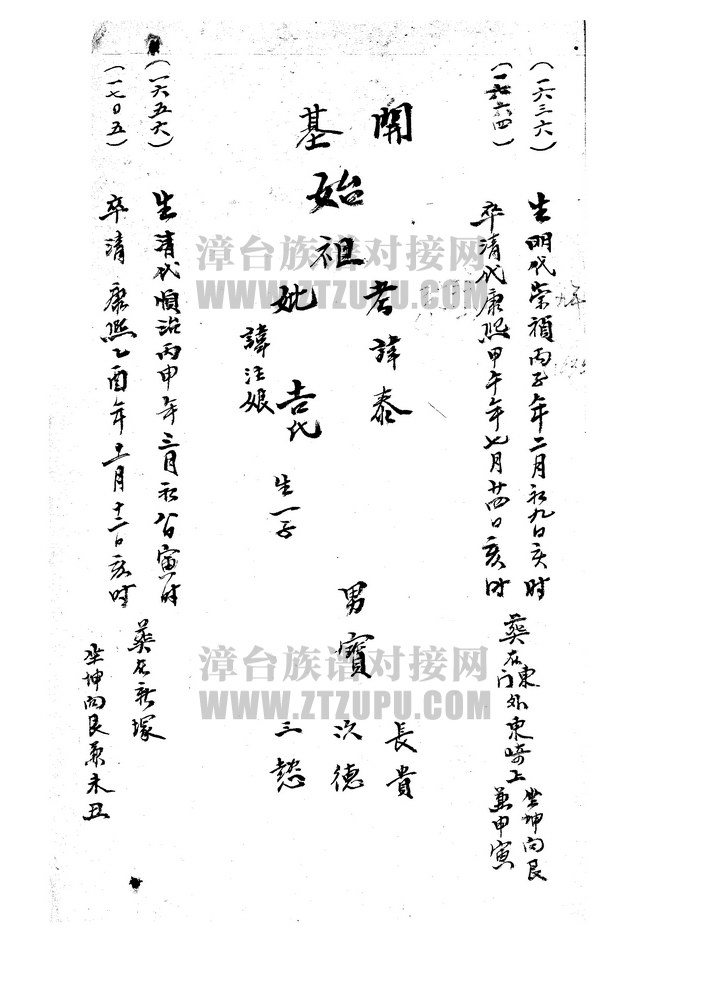 (一六三六)
生明代崇禎丙子年二月初九日亥时
(一七六四)
卒清代康熙甲午年七月廿四日亥时
葬在东门外東崎上
坐坤向艮
兼申寅
開
基
始
祖
考諱泰
妣吉代
諱汪娘
生一子
男寶
長貴
次德
三懿
(一六五六)
生清代順治丙申年三月初八日寅时
(一七0五)
卒清康熙乙酉年十一月十二日亥时
葬在新塚
坐坤向艮兼未丑
漳台族谱对接网
WWW.ZTZUPU.COM
漳台族谱对接网
WWW.ZTZUPU.COM